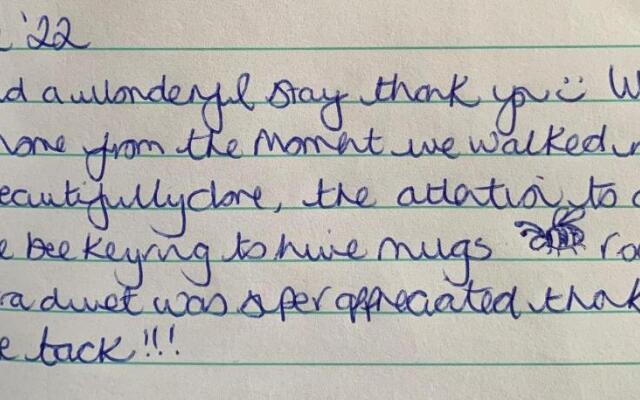 '22
d a wonderful stay thank you :) W
home from the moment we walked
eautifully done, the attention to
e bee keyring to hive mugs
duvet was super appreciated thank
e tack!!!